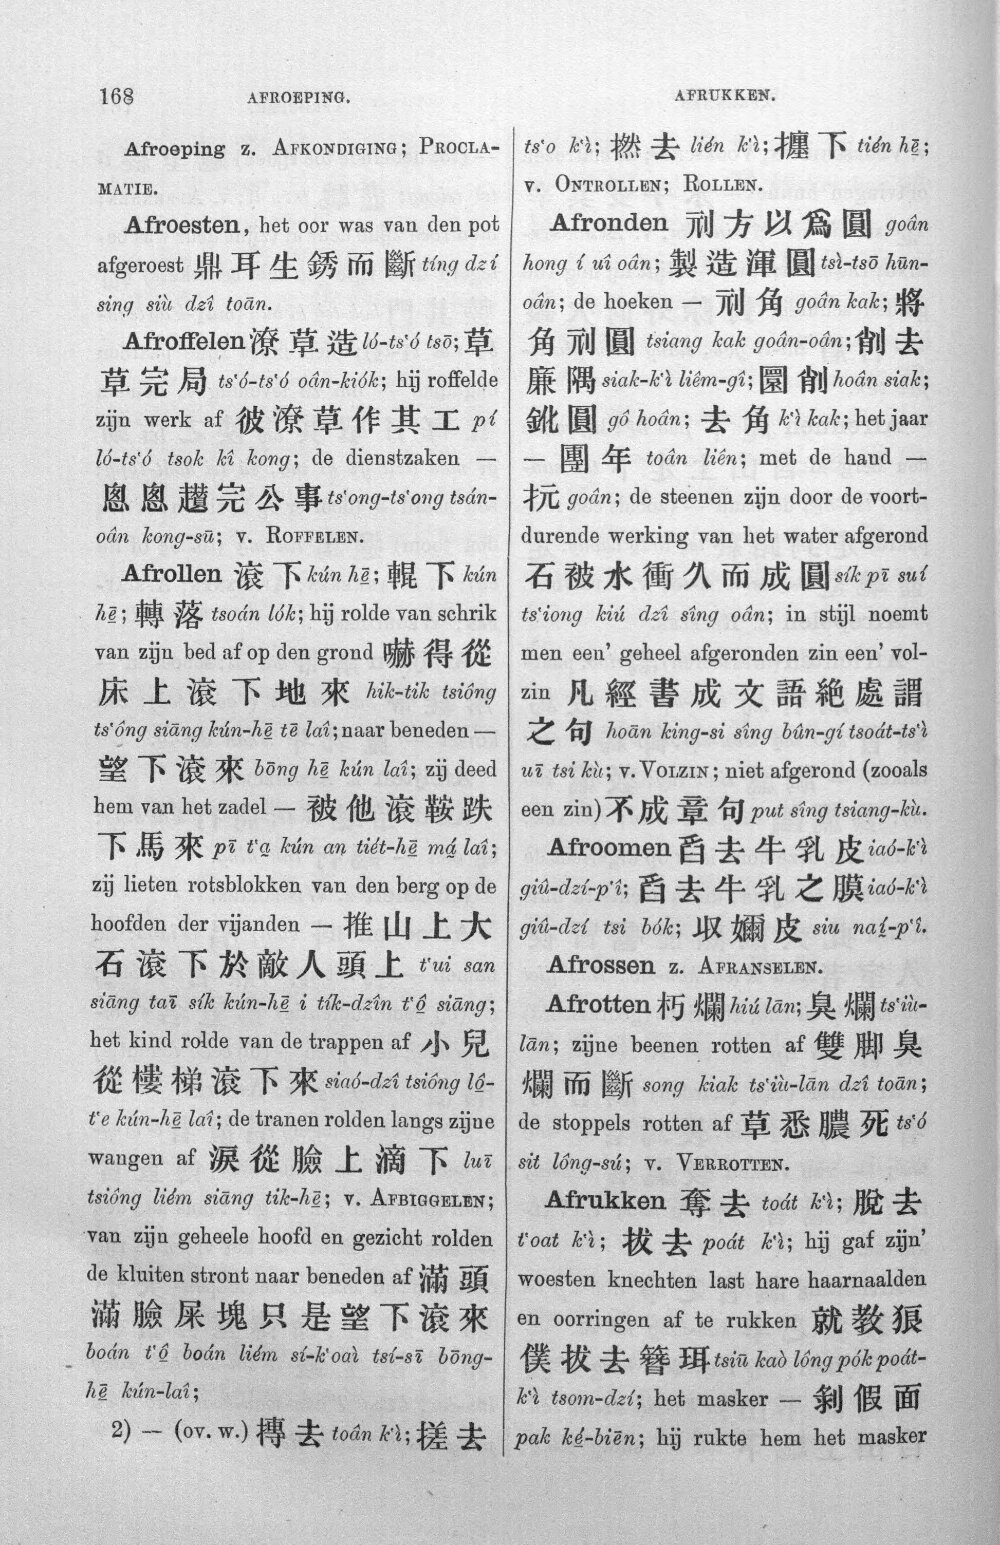 168
AFROEPING.
AFRUKKEN.
Afroeping z. AFKONDIGING; PROCLA-
MATIE.
Afroesten, het oor was van den pot
afgeroest 鼎耳生銹而斷 tíng dzí
sing siù dzî toān.
Afroffelen 潦草造 ló-ts'ó tsō; 草
草完局 ts'ó-ts'ó oân-kiók; hij roffelde
zijn werk af 彼潦草作其工 pí
ló-ts'ó tsok kî kong; de dienstzaken —
悤悤趲完公事 ts'ong-ts'ong tsán-
oân kong-sū; v. ROFFELEN.
Afrollen 滾下 kún hē; 輥下 kún
hē; 轉落 tsoán lók; hij rolde van schrik
van zijn bed af op den grond 嚇得從
床上滾下地來 hik-tik tsiông
ts'ông siāng kún-hē tē laî; naar beneden —
望下滾來 bōng hē kún laî; zij deed
hem van het zadel — 被他滾鞍跌
下馬來 pī t'a kún an tiét-hē má laî;
zij lieten rotsblokken van den berg op de
hoofden der vijanden — 推山上大
石滾下於敵人頭上 t'ui san
siāng taī sík kún-hē i tík-dzîn t'ô siāng;
het kind rolde van de trappen af 小兒
從樓梯滾下來 siaó-dzî tsiông lô-
t'e kún-hē laî; de tranen rolden langs zijne
wangen af 淚從臉上滴下 luī
tsiông liém siāng tik-hē; v. AFBIGGELEN;
van zijn geheele hoofd en gezicht rolden
de kluiten stront naar beneden af 滿頭
滿臉屎塊只是望下滾來
boán t'ô boán liém sí-k'oaì tsí-sī bōng-
hē kún-laî;
2) — (ov. w.) 摶去 toân k'ì; 搓去
ts'o k'ì; 撚去 lién k'ì; 攡下 tién hē;
v. ONTROLLEN; ROLLEN.
Afronden 刓方以爲圓 goân
hong í uî oân; 製造渾圓 tsì-tsō hūn-
oân; de hoeken — 刓角 goân kak; 將
角刓圓 tsiang kak goân-oân; 削去
廉隅 siak-k'ì liêm-gî; 圜削 hoân siak;
鈋圓 gô hoân; 去角 k'ì kak; het jaar
— 團年 toân liên; met de hand —
抏 goân; de steenen zijn door de voort-
durende werking van het water afgerond
石被水衝久而成圓 sík pī suí
ts'iong kiú dzî sîng oân; in stijl noemt
men een' geheel afgeronden zin een' vol-
zin 凡經書成文語絕處謂
之句 hoān king-si sîng bûn-gí tsoát-ts'ì
uī tsi kù; v. VOLZIN; niet afgerond (zooals
een zin) 不成章句 put sîng tsiang-kù.
Afroomen 舀去牛乳皮 iaó-k'ì
giû-dzí-p'î; 舀去牛乳之膜 iaó-k'ì
giû-dzí tsi bók; 収嬭皮 siu naí-p'î.
Afrossen z. AFRANSELEN.
Afrotten 朽爛 hiú lān; 臭爛 ts'iù-
lān; zijne beenen rotten af 雙脚臭
爛而斷 song kiak ts'iù-lān dzî toān;
de stoppels rotten af 草悉膿死 ts'ó
sit lông-sú; v. VERROTTEN.
Afrukken 奪去 toát k'ì; 脫去
t'oat k'ì; 拔去 poát k'ì; hij gaf zijn'
woesten knechten last hare haarnaalden
en oorringen af te rukken 就教狼
僕拔去簪珥 tsiū kaò lông pók poát-
k'ì tsom-dzí; het masker — 剝假面
pak ké-biēn; hij rukte hem het masker